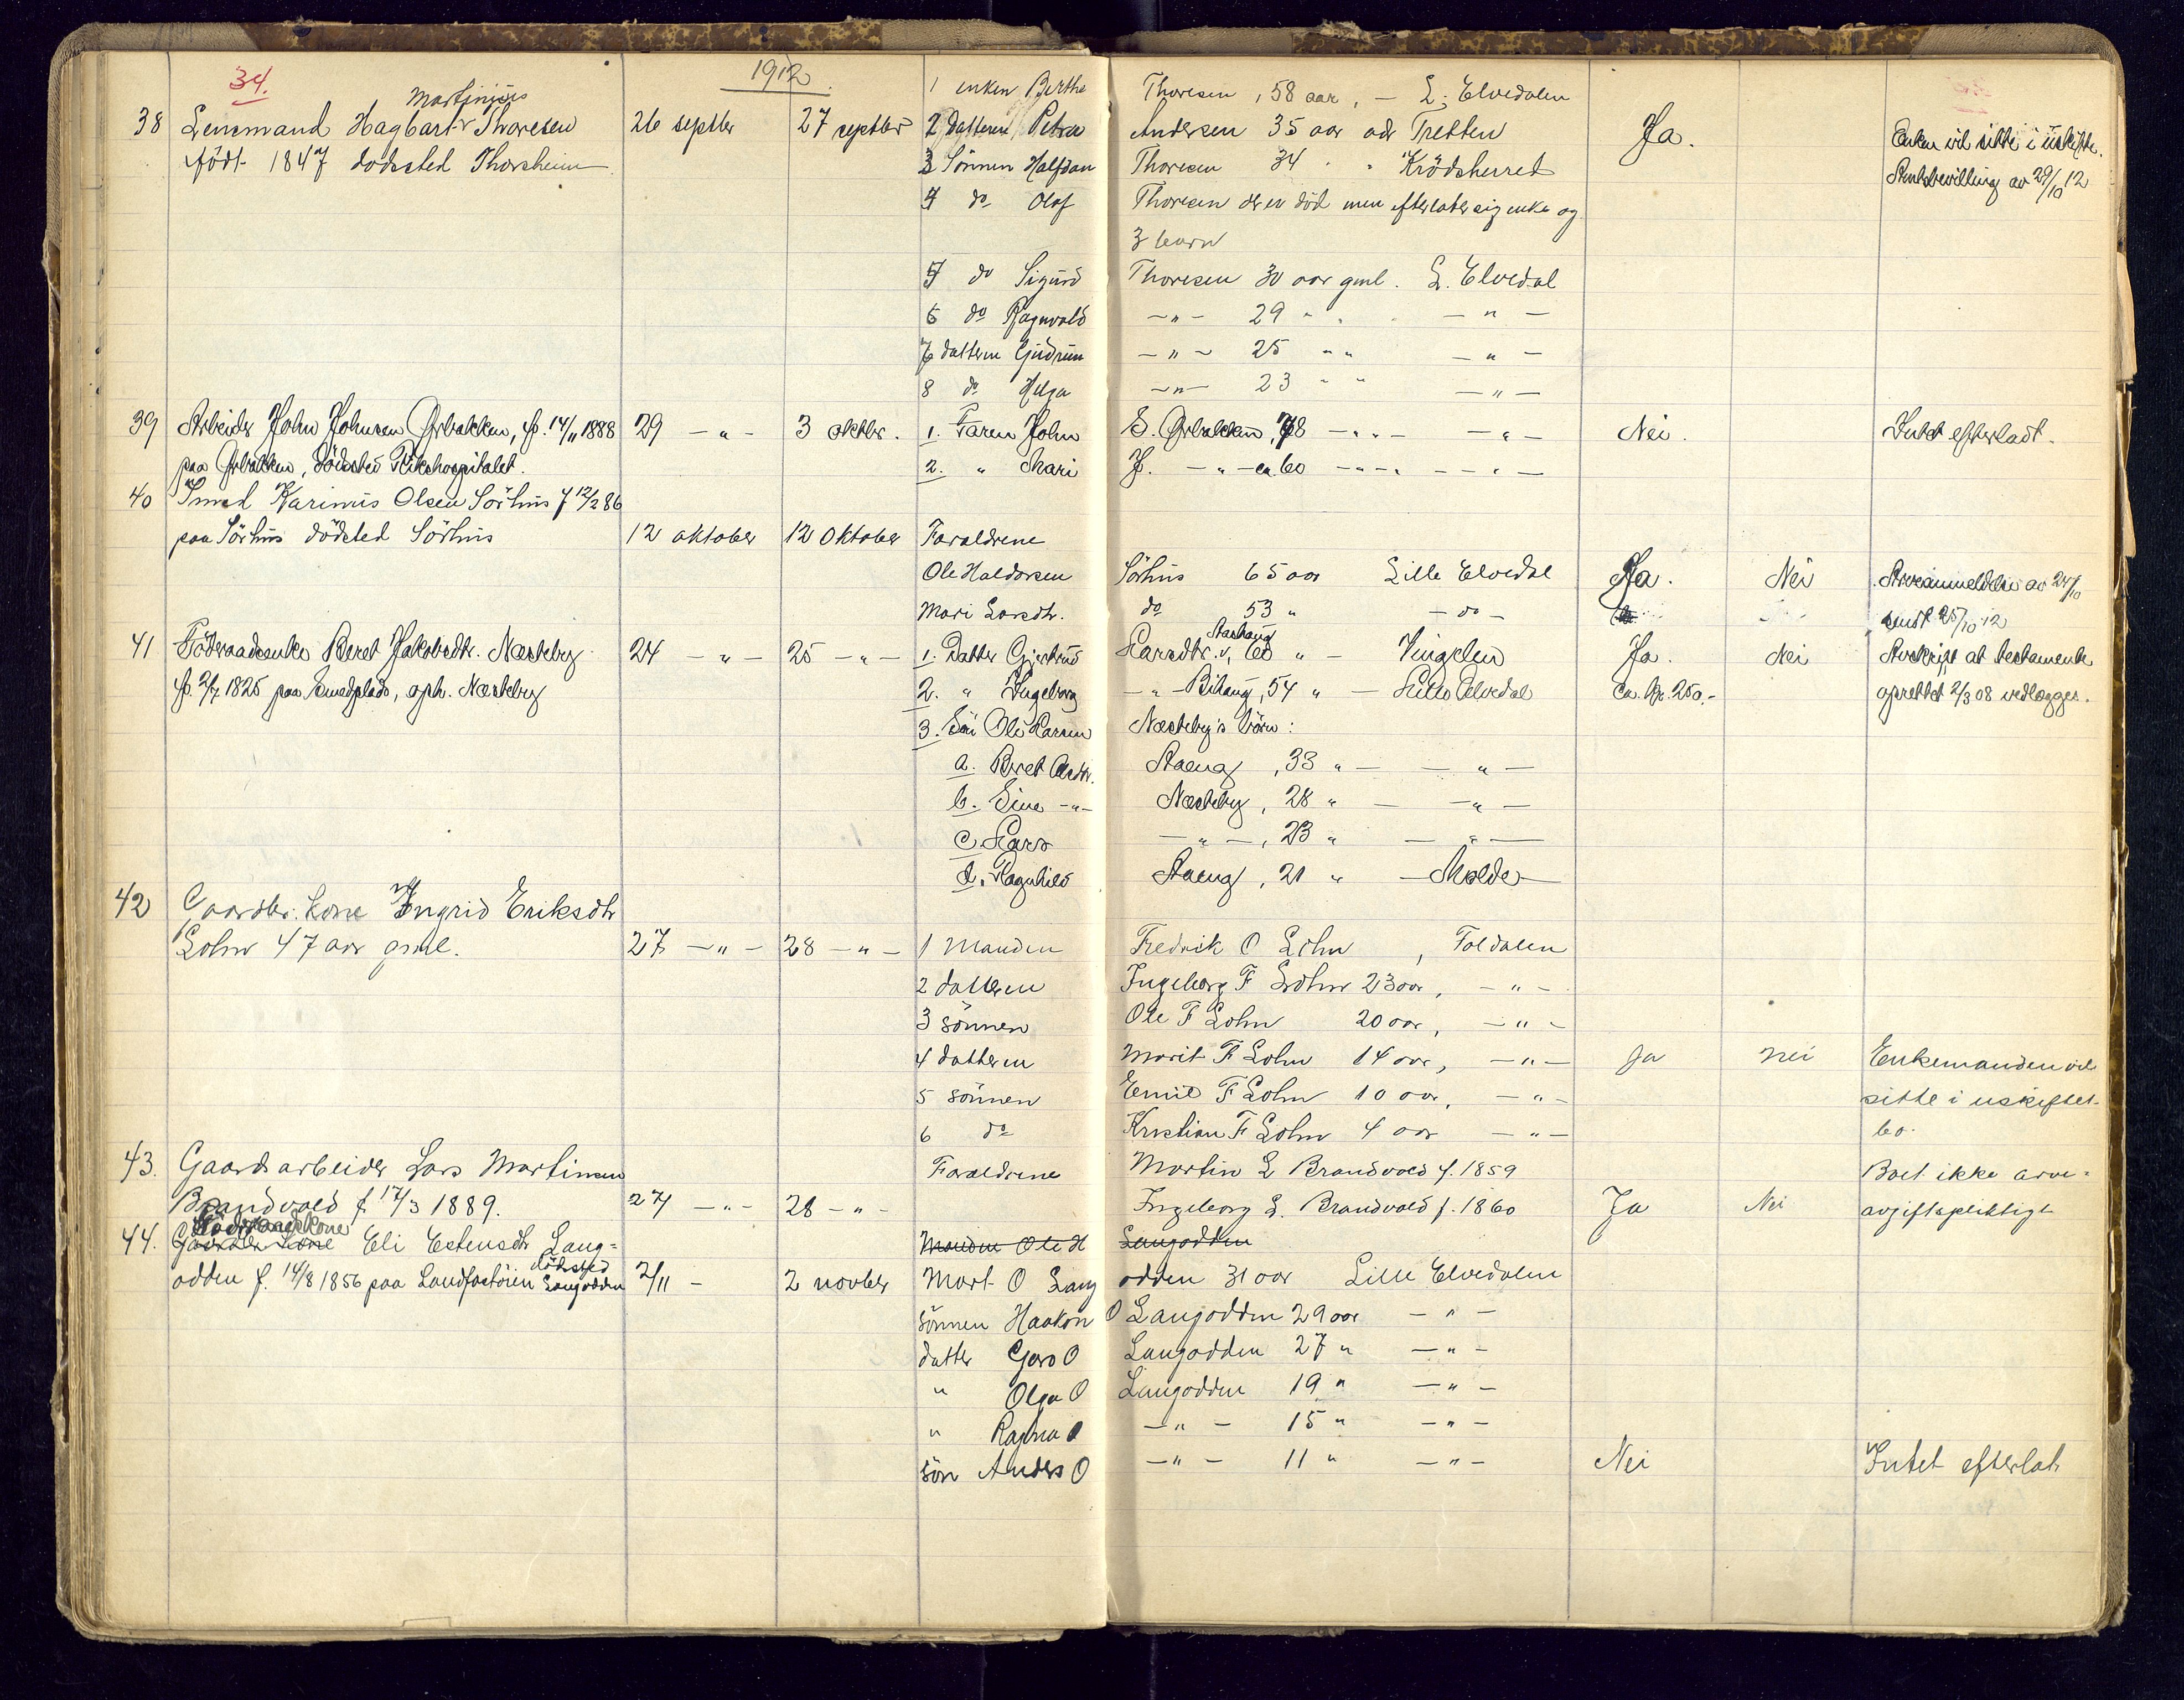 34.
1912
1 enken Berthe Thoresen, 58 aar, — L. Elvedalen
Martinius
38 Lensmand Hagbart Thoresen 26 septbr 27 septbr 2 datteren Petra Andersen 35 aar adr Tretten Ja. Enken vil sitte i uskifte.
født 1847 dødssted Thorsheim 3 Sönnen Halfdan Thoresen 34 " " Krödsherred Amtsbevilling av 29/10 12
4 do Olaf Thoresen der er död men efterlater sig enke og
3 barn
5 do Sigurd Thoresen 30 aar gml. L. Elvedal
6 do Ragnvald —„— 29 " " —„—
7 datteren Gudrun —„— 25 " " —„—
8 do Helga —„— 23 " " —„—
39 Arbeider John Johnsen Ørbakken, f. 14/11 1888 29 —„— 3 oktbr. 1. Faren John S. Ørbakken, 78 —„— —„— Nei. Intet efterladt.
paa Ørbakken, dödssted Rikshospitalet. 2. " Mari J. —„— ca 60 —„— —„—
40 Smed Karinus Olsen Sörhus f 12/2 86
paa Sörhus dödsted Sörhus 12 oktober 12 Oktober Foraldrene
Ole Haldorsen Sörhus 65 aar Lille Elvedal Ja. Nei Arveanmeldelse av 24/10
Mari Larsdtr. do 53 " —do— sendt 25/10 12
Aashaug
41 Föderaadsenke Beret Jakobsdtr. Næsteby 24 —„— 25 —„— 1. Datter Gjertrud Larsdtr. , 60 " — Vingelen Ja. Nei Avskrift at testamente
f. 2/7 1825 paa Smedplads, oph. Næsteby 2. " Ingeborg —„— Bihaug, 54 " — Lille Elvedal Ca. kr. 250.- oprettet 2/3 08 vedlægges.
3. Sön Ole Larsen Næsteby's börn:
a. Beret Olsdtr. Aaeng, 33 " — —„—
b. Sine —„— Næsteby, 28 " — —„—
c. Lars —„—, 23 " —„—
d. Ragnhild Aaeng, 21 " — Molde —
42 Gaardbr. kone Ingrid Eriksdtr
Lohn 47 aar gml. 27 —„— 28 —„— 1 Manden Fredrik O Lohn , Foldalen
2 datteren Ingeborg F Lohn 23 aar, —„—
3 sönnen Ole F Lohn 20 aar, —„—
4 datteren Marit F Lohn 14 aar, —„— Ja Nei Enkemanden vil
5 sönnen Emil F Lohn 10 aar, —„— sitte i uskiftet
6 do Kristian F Lohn 4 aar —„— bo.
43. Gaardsarbeider Lars Martinsen Foraldrene Martin L Brandvold f. 1859 Boet ikke arve=
Brandvold f 17/3 1889. 27 —„— 28 —„— Ingeborg L. Brandvold f. 1860 Ja Nei avgiftspliktigt
Föderaadskone
44. Gaardbr. kone Eli Estensdtr Lang= Manden Ole H Langodden
dödssted
odden f. 14/8 1856 paa Sandfastöien Langodden 2/11 — 2 novber Mart O Langodden 31 aar Lille Elvedalen
sönnen Haakon O Langodden 29 aar —„—
datter Gjero O Langodden 27 " —„—
" Olga O Langodden 19 " —„—
" Ragna O —„— 15 " —„—
sön Anders O —„— 11 " —„— Nei Intet efterlat